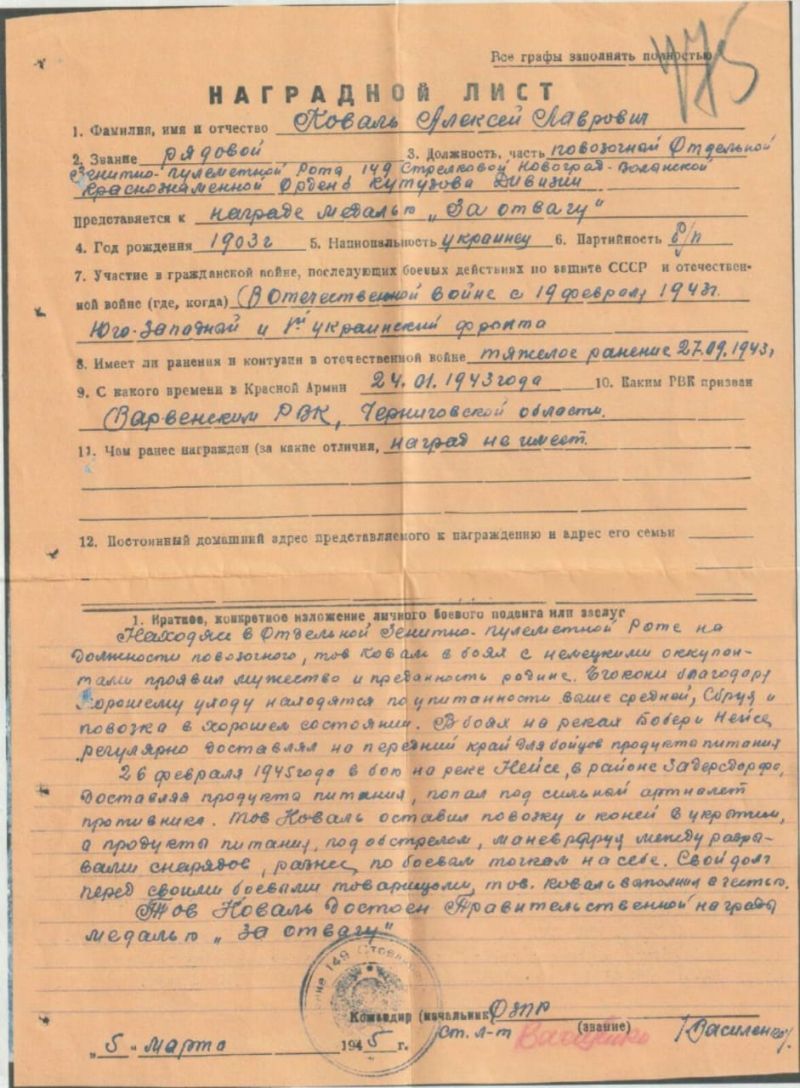 Все графы заполнять полностью
475
НАГРАДНОЙ ЛИСТ
1. Фамилия, имя и отчество Коваль Алексей Лаврович
2. Звание рядовой 3. Должность, часть повозочной Отдельной
Зенитно-пулеметной Рота 149 Стрелковой Новоград-Волынской
Краснознаменной Ордена Кутузова Дивизии
Представляется к награде медалью „За отвагу"
4. Год рождения 1903г 5. Национальность украинец 6. Партийность б/п
7. Участие в гражданской войне, последующих боевых действиях по защите СССР и отечествен-
ной войне (где, когда) В Отечественной войне с 19 февраля 1943г.
Юго-Западной и украинский фронта
8. Имеет ли ранения и контузии в отечественной войне тяжелое ранение 27.09.1943г
9. С какого времени в Красной Армии 24.01.1943года 10. Каким РВК призван
Варвенским РВК, Черниговской области.
11. Чем ранее награжден (за какие отличия, наград не имеет.
12. Постоянный домашний адрес представляемого к награждению и адрес его семьи
1. Краткое, конкретное изложение личного боевого подвига или заслуг
Находяс в Отдельной Зенитно-пулеметной Роте на
должности повозочного, тов Коваль в боях с немецкими оккупон-
тами проявил мужество и преданность родине. Его кони благодаря
хорошему уходу находятся по упитанности выше средней, Сбруя и
повозка в хорошем состоянии. В боях на реках Бобер и Нейсе,
регулярно доставлял на передний край для бойцов продукта питания
26 февраля 1945года в бою на реке Нейсе, в районе Задерсдорфа,
доставляя продукта питания, попал под сильной артналет
противника. Тов Коваль оставил повозку и коней в укрытии,
а продукты питания, под обстрелом, маневрируя между разры-
вами снарядов, разнес по боевым точкам на себе. Свой долг
перед своими боевыми товарищами, тов. Коваль выполнил с честью.
Тов Коваль достоен Правительственной награды
медалью „За отвагу"
149 Стрелк
Командир (начальник ОЗПР
ст. л-т (звание) /Василенко/
„5" марта 1945 г.